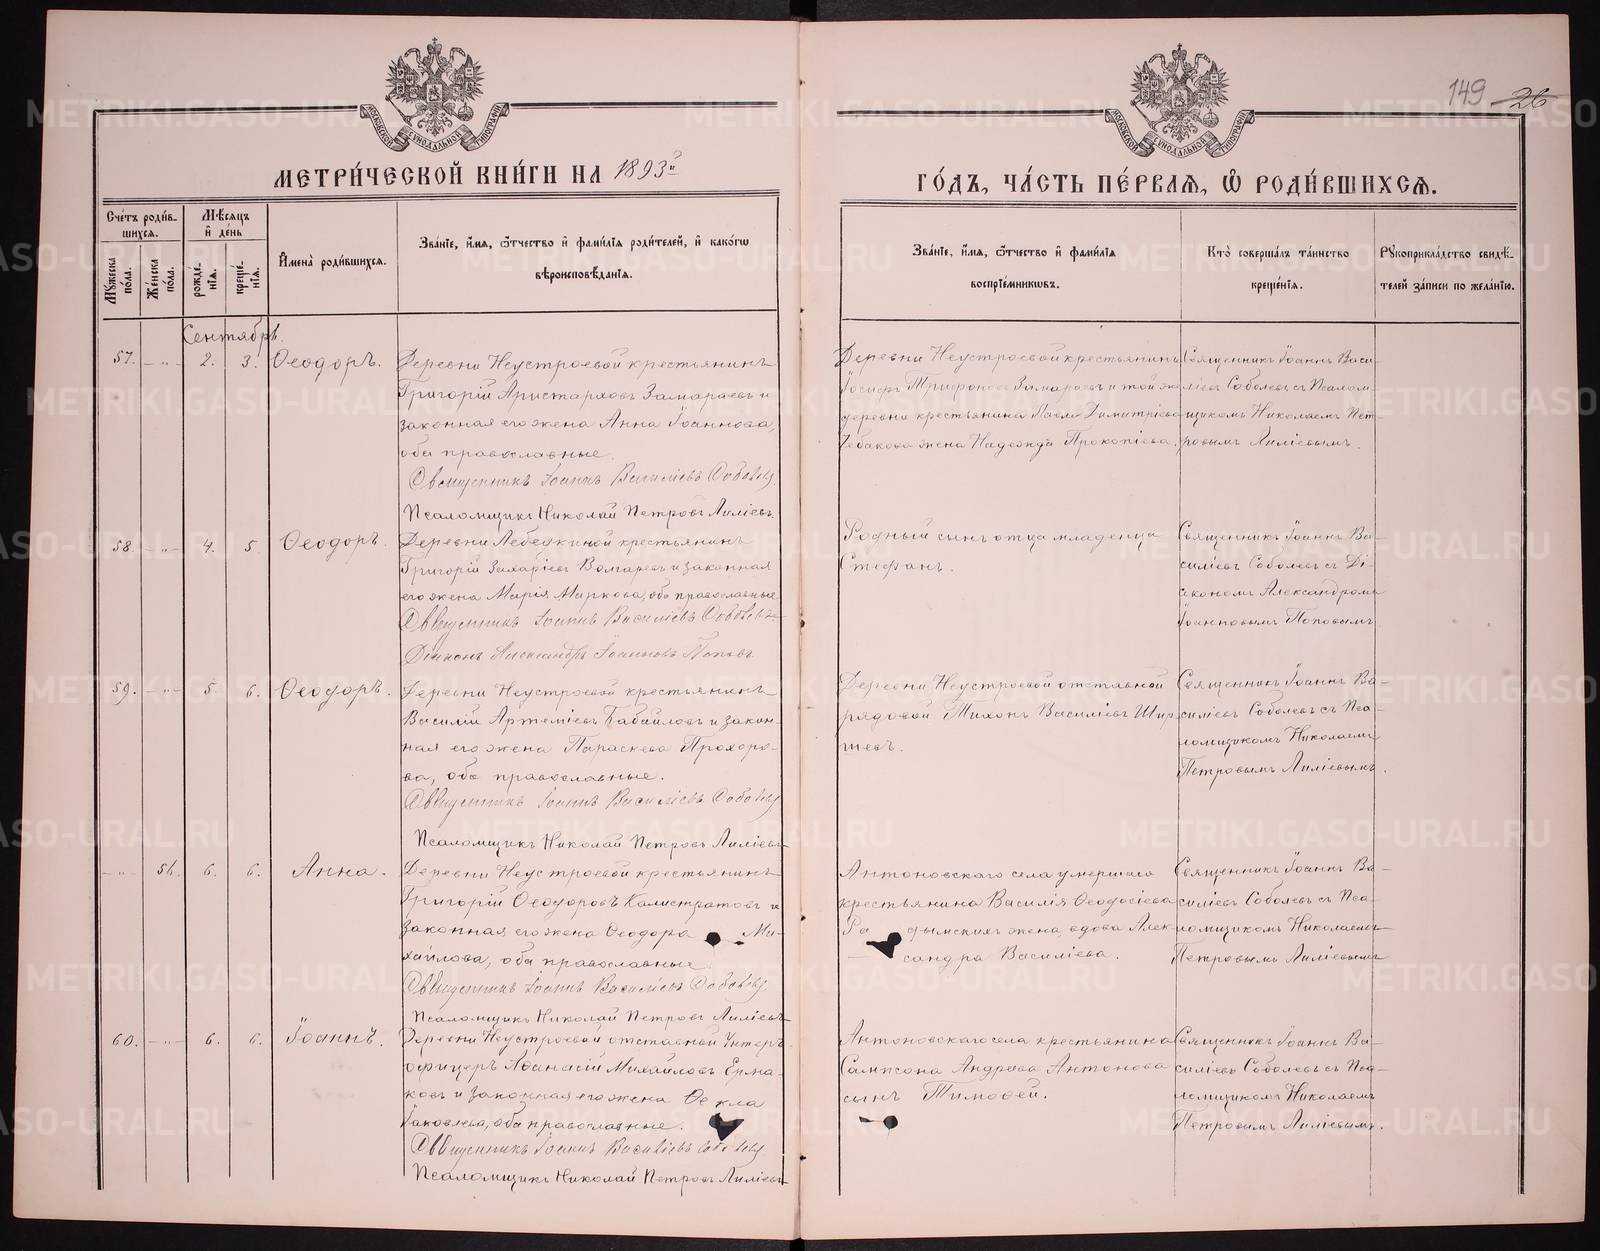 149 26
МОСКОВСКОЙ СѴНОДАЛЬНОЙ ТИПОГРАФІИ
МОСКОВСКОЙ СѴНОДАЛЬНОЙ ТИПОГРАФІИ
МЕТРИ́ЧЕСКОЙ КНИ́ГИ НА 1893й
ГО́ДЪ, ЧА́СТЬ ПЕ́РВАѦ, Ѽ РОДИ́ВШИХСѦ.
Сче́тъ роди́в-
шихсѧ.
Мꙋ́жеска по́ла.
Же́нска по́ла.
Мѣ́сѧцъ
и҆ де́нь
рожде́-
нїѧ.
креще́-
нїѧ.
И҆мена̀ роди́вшихсѧ.
Зва́нїе, и҆́мѧ, ѻ҆́тчество и҆ фами́лїѧ роди́телей, и҆ како́гѡ
вѣроисповѣ́данїѧ.
Зва́нїе, и҆́мѧ, ѻ҆́тчество и҆ фами́лїѧ
воспрїе́мникѡвъ.
Кто̀ соверша́лъ та́инство
креще́нїѧ.
Рꙋкоприкла́дство свидѣ́-
телей за́писи по жела́нїю.
Сентябрь.
57. -"- 2. 3. Ѳеодоръ.
Деревни Неустроевой крестьянинъ
Григорій Аристарховъ Замараевъ и
законная его жена Анна Іоаннова,
оба православные.
Священникъ Іоаннъ Василіевъ Соболевъ
Псаломщикъ Николай Петровъ Лиліевъ
Деревни Неустроевой крестьянинъ
Іосифъ Трифоновъ Замараевъ и той же
деревни крестьянина Павла Димитріева
жена Надежда Прокопіева.
Священникъ Іоаннъ Васи-
ліевъ Соболевъ съ Псалом-
щикомъ Николаемъ Пет-
ровымъ Лиліевымъ.
58. -"- 4. 5. Ѳеодоръ.
Деревни Лебедкиной крестьянинъ
Григорій Захаріевъ Волгаревъ и законная
его жена Марія Маркова, оба православные
Священникъ Іоаннъ Василіевъ Соболевъ
Діаконъ Александръ Іоанновъ Поповъ
Родный сынъ отца младенца
Стефанъ.
Священникъ Іоаннъ Ва-
силіевъ Соболевъ съ Ді-
акономъ Александромъ
Іоанновымъ Поповымъ
59. -"- 5. 6. Ѳеодоръ.
Деревни Неустроевой крестьянинъ
Василій Артеміевъ Бабайловъ и закон-
ная его жена Параскева Прохоро-
ва, оба православные.
Священникъ Іоаннъ Василіевъ Соболевъ
Псаломщикъ Николай Петровъ Лиліевъ
Деревни Неустроевой отставной
рядовой Тихонъ Василіевъ Шир-
шевъ.
Священникъ Іоаннъ Ва-
силіевъ Соболевъ съ Пса-
ломщикомъ Николаемъ
Петровымъ Лиліевымъ.
-"- 56. 6. 6. Анна.
Деревни Неустроевой крестьянинъ
Григорій Ѳеодоровъ Калистратовъ и
законная его жена Ѳеодора Ми-
хайлова, оба православные
Священникъ Іоаннъ Василіевъ Соболевъ
Псаломщикъ Николай Петровъ Лиліевъ
Антоновскаго села умершаго
крестьянина Василія Ѳеодосіева
жена, вдова Алек-
сандра Василіева.
Священникъ Іоаннъ Ва-
силіевъ Соболевъ съ Пса-
ломщикомъ Николаемъ
Петровымъ Лиліевымъ
60. -"- 6. 6. Іоаннъ.
Деревни Неустроевой отставной Унтеръ-
офицеръ Аѳанасій Михайловъ Ерма-
ковъ и законная его жена Ѳекла
Іаковлева, оба православные.
Священникъ Іоаннъ Василіевъ Соболевъ
Псаломщикъ Николай Петровъ Лиліевъ
Антоновскаго села крестьянина
Сампсона Андреева Антонова
сынъ Тимоѳей.
Священникъ Іоаннъ Ва-
силіевъ Соболевъ съ Пса-
ломщикомъ Николаемъ
Петровымъ Лиліевымъ.
METRIKI.GASO-URAL.RU